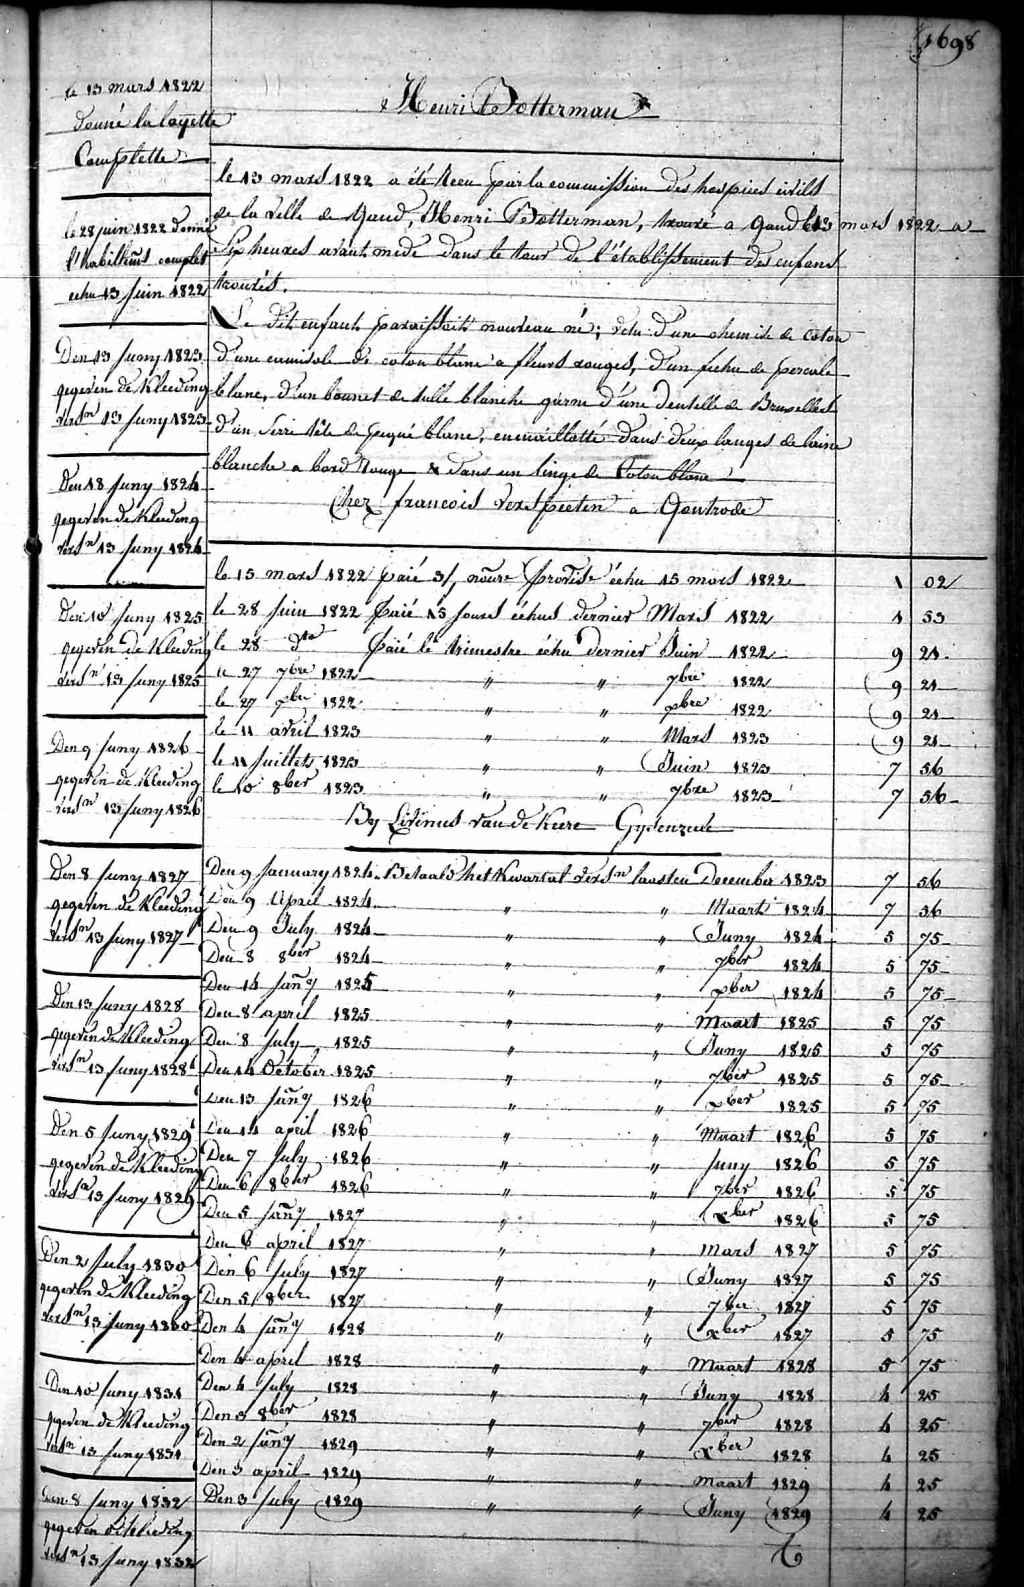 1698
le 13 mars 1822
donné la layette
Complette
le 28 juin 1822 donné
l'habillemt complet
echu 13 Juin 1822
Den 13 Juny 1823
gegeven de Kleeding
versn 13 Juny 1823
Den 18 Juny 1824
gegeven de Kleeding
versn 13 Juny 1824
Den 10 Juny 1825
gegeven de Kleeding
versn 13 Juny 1825
Den 9 Juny 1826
gegeven de Kleeding
versn 13 Juny 1826
Den 8 Juny 1827
gegeven de Kleeding
versn 13 Juny 1827
Den 13 Juny 1828
gegeven de Kleeding
versn 13 Juny 1828
Den 5 Juny 1829
gegeven de Kleeding
versn 13 Juny 1829
Den 2 July 1830
gegeven de Kleeding
versn 13 Juny 1830
Den 10 Juny 1831
gegeven de Kleeding
versn 13 Juny 1831
Den 8 Juny 1832
gegeven de Kleeding
versn 13 Juny 1832
Henri Botterman
le 13 mars 1822 a été Recu par la commission des hospices civils
de la ville de Gand, Henri Botterman, trouvé a Gand le 13 mars 1822 a
Six heures avant midi dans le tour de l'établissement des enfans
trouvés.
Le dit enfant paraissait nouveau né; vetu d'une chemise de coton
d'une camisole de coton blanc a fleurs rouges, d'un fichu de percale
blanc, d'un bonnet de tulle blanche garni d'une dentelle de Bruxelles
d'un Serre tête de piqué blanc, enmaillotté dans deux langes de laine
blanche a bord Rouge & dans un linge de Coton blanc
Chez francois Verspeeten a Gontrode
le 15 mars 1822 paié 3/, nourre provise échu 15 mars 1822 1 02
le 28 Juin 1822 paié 15 jours échus dernier Mars 1822 1 53
le 28 dto paié le trimestre échu dernier Juin 1822 9 21
le 27 7bre 1822 " " 7bre 1822 9 21
le 27 xbre 1822 " " xbre 1822 9 21
le 11 avril 1823 " " Mars 1823 9 21
le 11 Juillet 1823 " " Juin 1823 7 56
le 10 8ber 1823 " " 7bre 1823 7 56
By Livinus van de Keere Gysenzeele
Den 9 January 1824 Betaald het Kwartal versn laasten December 1823 7 56
Den 9 April 1824 " " Maart 1824 7 56
Den 9 July 1824 " " Juny 1824 5 75
Den 8 8ber 1824 " " 7ber 1824 5 75
Den 14 Jany 1825 " " xber 1824 5 75
Den 8 april 1825 " " Maart 1825 5 75
Den 8 July 1825 " " Juny 1825 5 75
Den 14 October 1825 " " 7ber 1825 5 75
Den 13 Jany 1826 " " xber 1825 5 75
Den 14 april 1826 " " Maart 1826 5 75
Den 7 July 1826 " " Juny 1826 5 75
Den 6 8ber 1826 " " 7ber 1826 5 75
Den 5 Jany 1827 " " xber 1826 5 75
Den 6 april 1827 " " Mars 1827 5 75
Den 6 July 1827 " " Juny 1827 5 75
Den 5 8ber 1827 " " 7ber 1827 5 75
Den 4 Jany 1828 " " xber 1827 5 75
Den 4 april 1828 " " Maart 1828 5 75
Den 4 July 1828 " " Juny 1828 4 25
Den 3 8ber 1828 " " 7ber 1828 4 25
Den 2 Jany 1829 " " xber 1828 4 25
Den 3 april 1829 " " Maart 1829 4 25
Den 3 July 1829 " " Juny 1829 4 25